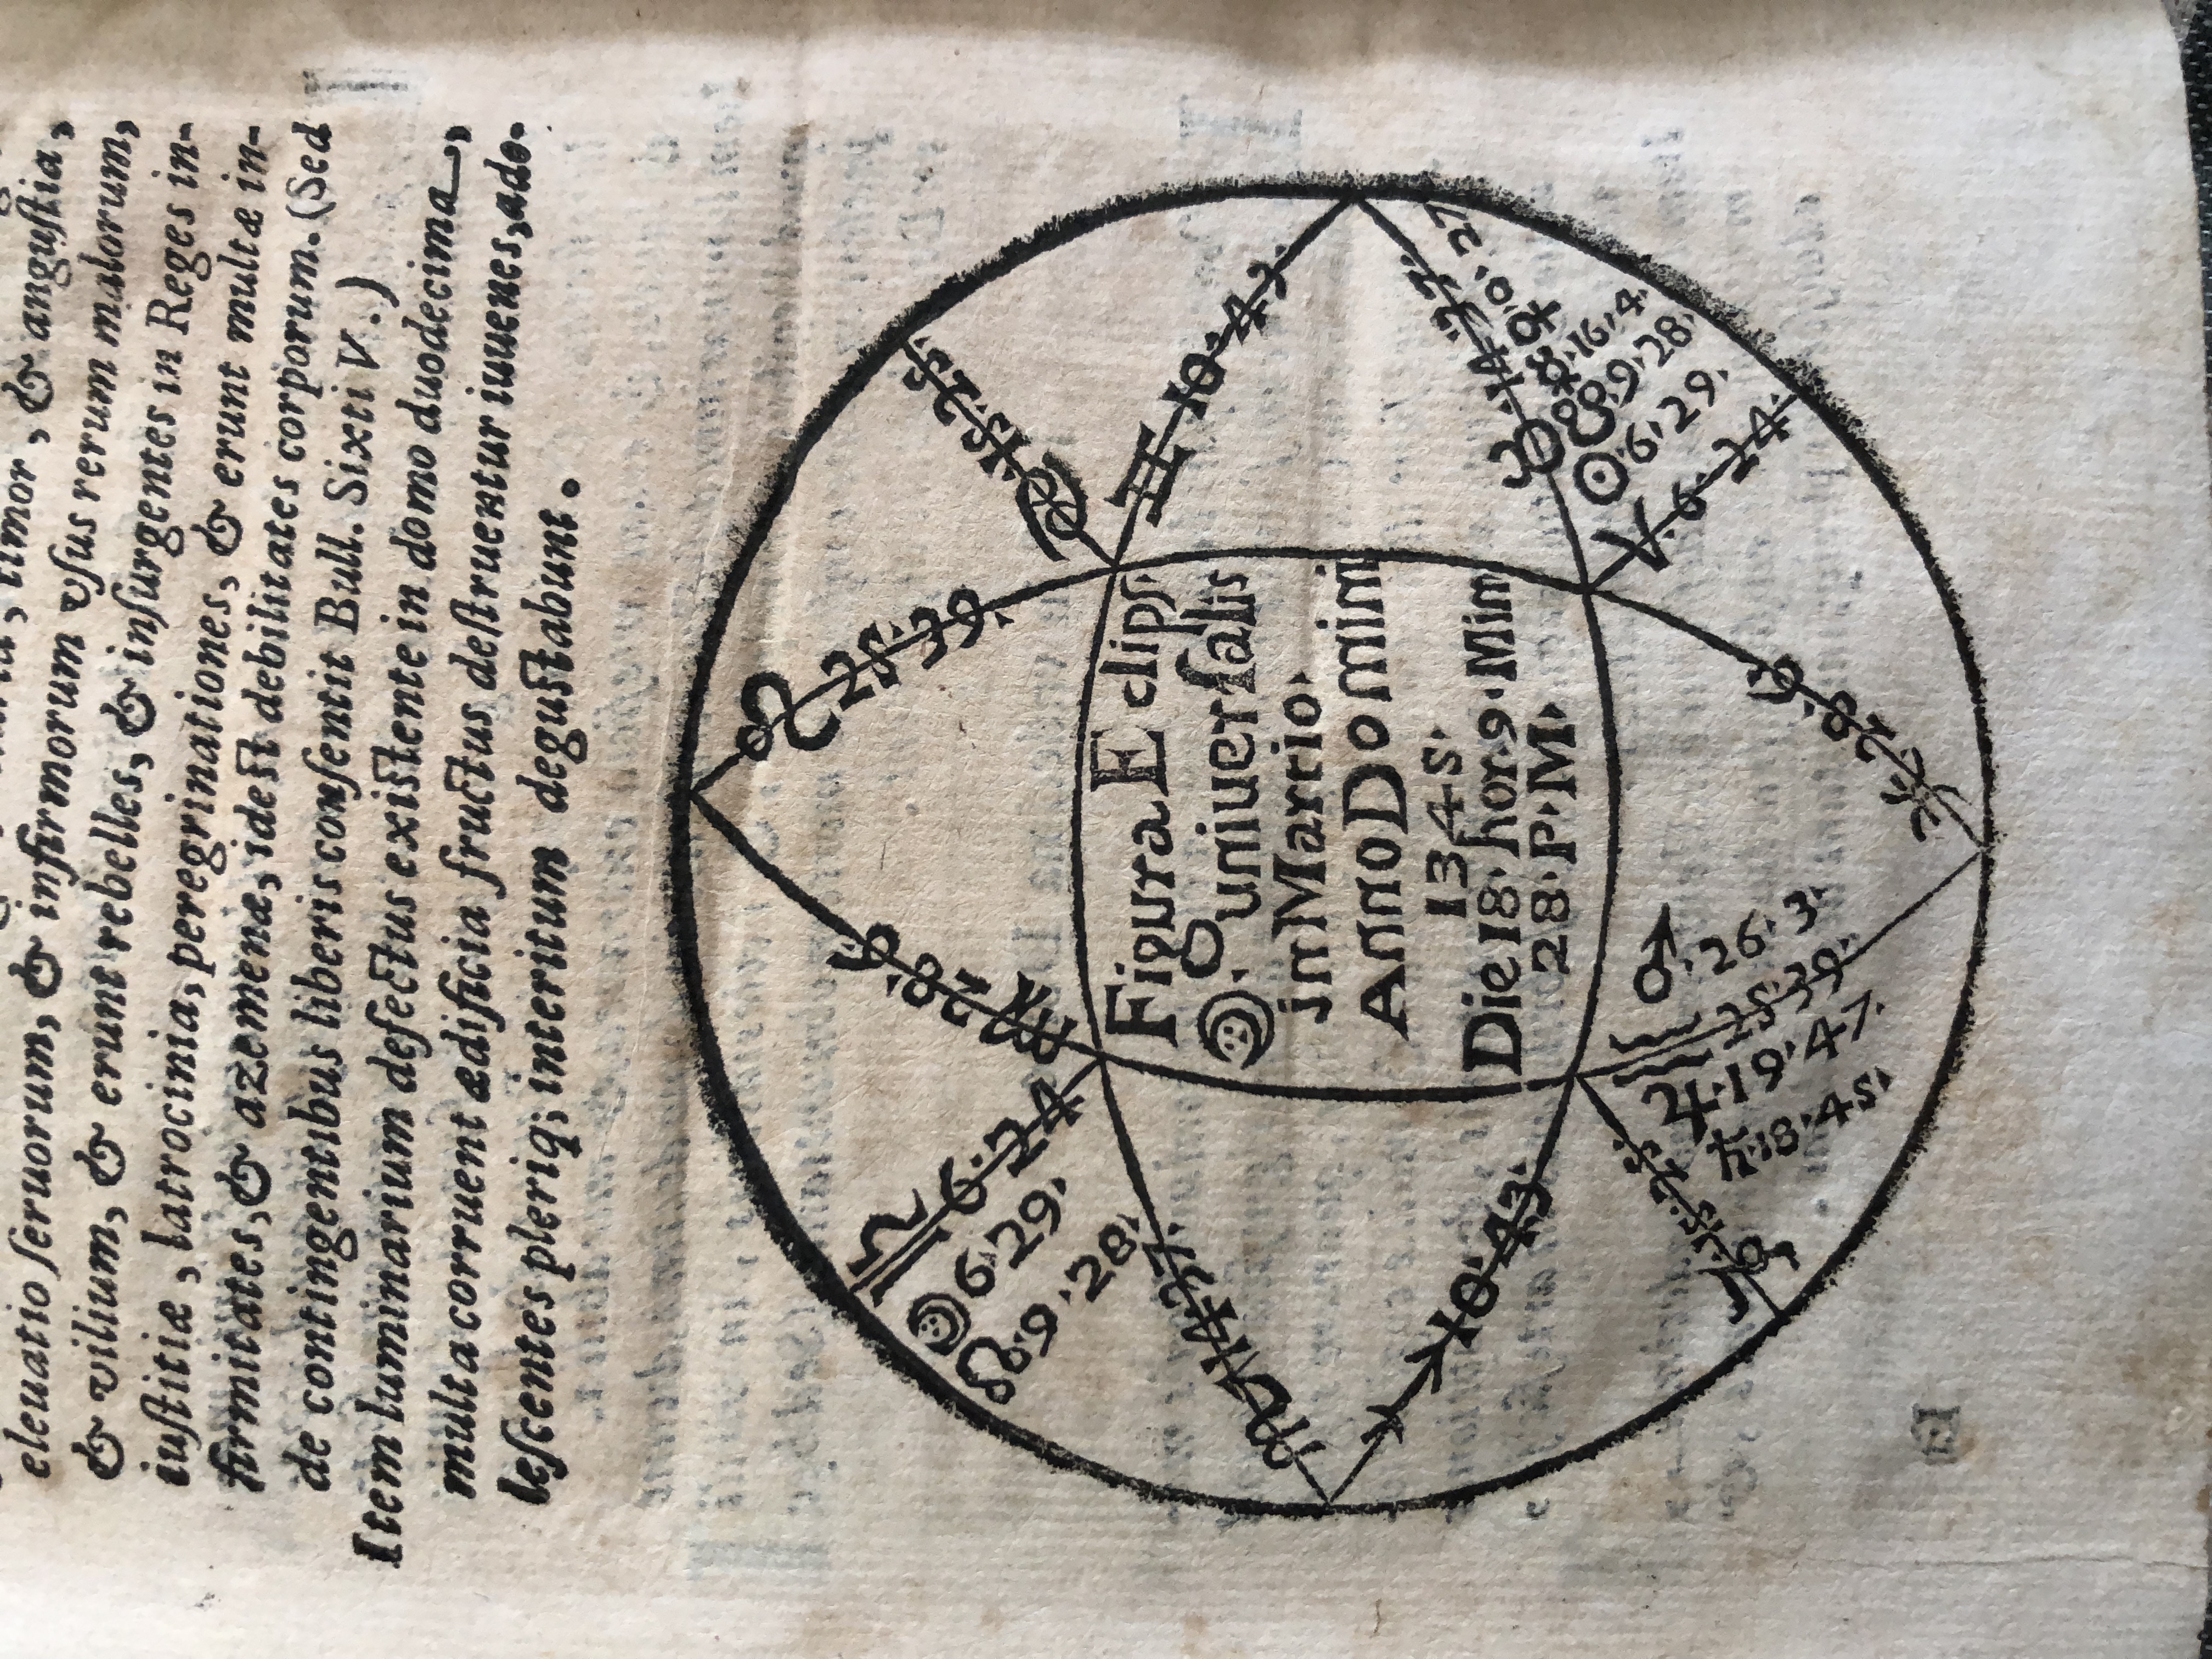 eleuatio ſeruorum, & infirmorum vſus rerum malorum,
& vilium, & erunt rebelles, & inſurgentes in Reges in-
iuſtitiæ, latrocinia, peregrinationes, & erunt multæ in-
firmitates, & azemenæ, ideſt debilitates corporum. (Sed
de contingentibus liberis conſentit Bull. Sixti V.)
Item luminarium defectus exiſtente in domo duodecima,
multa corruent ædificia fructus deſtruentur iuuenes, ado-
leſcentes pleriq; interitum deguſtabunt.
♌ 25. 39.
♋ 15. 25.
♊ 10. 43.
♉ 14. 27.
☿ 8. 16. 4.
☋ 9. 28.
☉ 6. 29.
♈ 6. 24.
♓ 28. 6.
♂ 26. 3.
♒ 25. 39.
♃ 19. 47.
♄ 18. 45.
♑ 15. 25.
♐ 10. 43.
♏ 14. 27.
☊ 9. 28.
☽ 6. 29.
♎ 6. 24
♍ 28. 6
Figura Eclipſ
☽. uniuerſalis
in Martio.
Anno Domini
1345.
Die 18. hor. 9. Min
28. P. M.
E